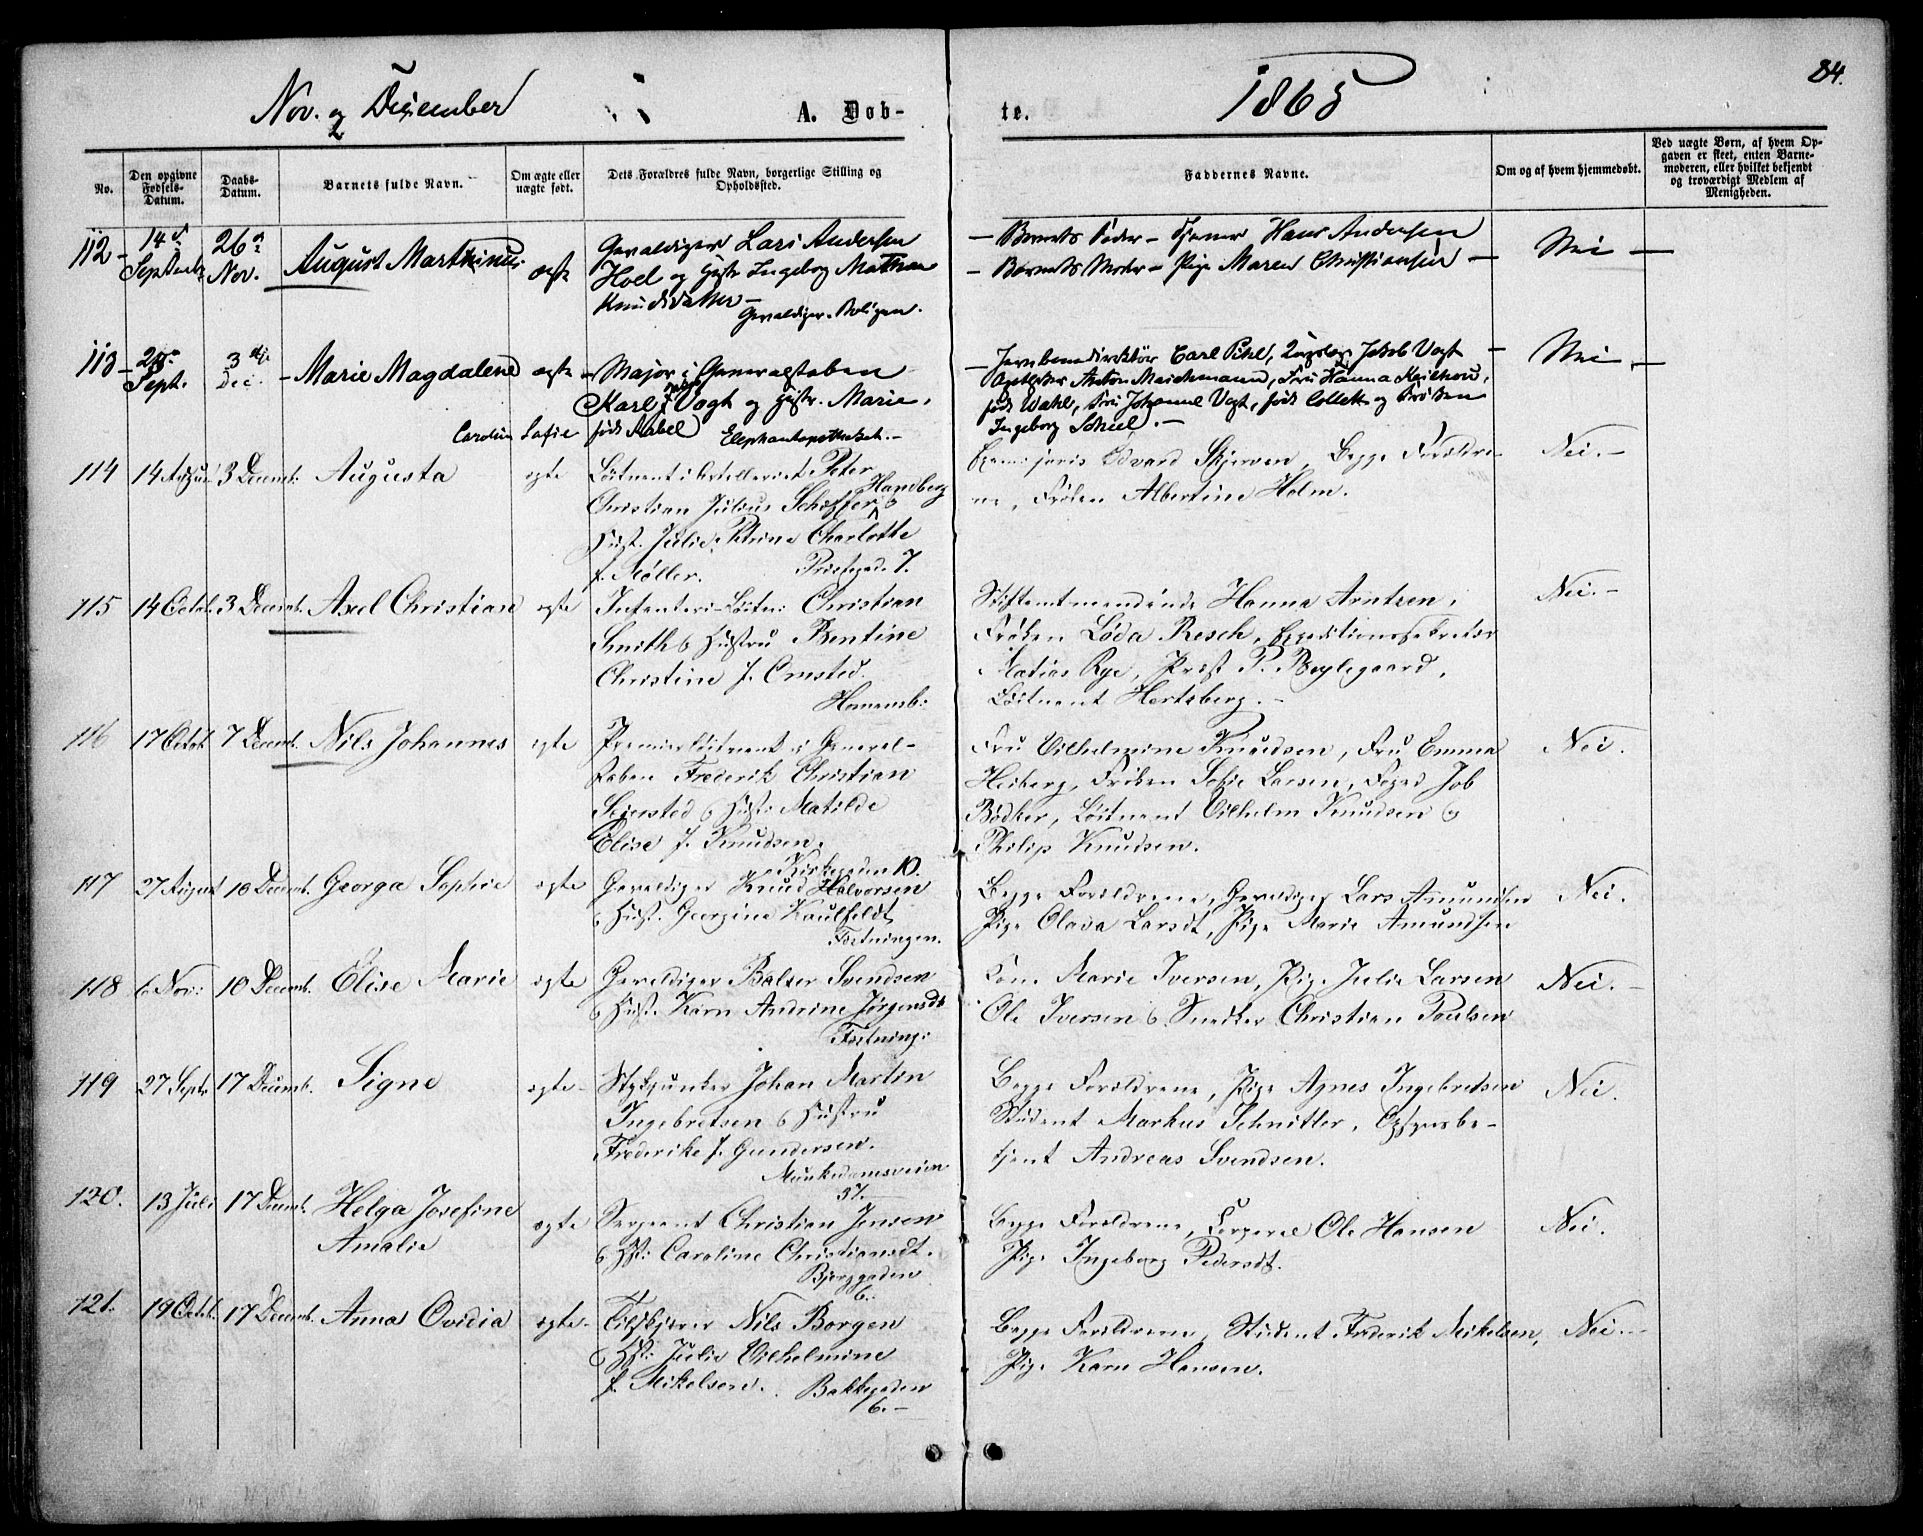 Nov. og December
A. Døb-
te.
1865
84.
No.
Den opgivne Fødsels-Datum.
Daabs-Datum.
Barnets fulde Navn.
Om ægte eller uægte født.
Dets Forældres fulde Navn, borgerlige Stilling og Opholdssted.
Faddernes Navne.
Om og af hvem hjemmedøbt.
Ved uægte Børn, af hvem Opgaven er skeet, enten Barnemoderen, eller hvilket bekjendt og troværdigt Medlem af Menigheden.
112 14de Septembr 26de Nov. August Marthinus ægte
Gevaldiger Lars Andersen
Hoel og Hustr Ingeborg Mathea
Knudsdatter -
Gevaldiger-Boligen.
- Barnets Fader - Tjener Hans Andersen
- Barnets Moder - Pige Maren Christiansen -
Nei -
113 Sept. 3die Dec. Marie Magdalene ægte
Major i Generalstaben
Karl Vogt og Hustr. Marie,
født Abel Elephantapotheket. -
Jernbanedirektør Carl Pihl, Jakob Vogt
Apotheker Anton Maschmann, Fru Hanna Keilhau,
født Wahl, Fru Johanne Vogt, født Collett og Frøken
Ingeborg Schiel. -
Nei -
Carolin Sofie
114 14 August 3 Decemb: Augusta ægte
Løitnant i Artilleriet Peter
Hamberg
Christian Julius Schøffer &
Hust. Julie Petrine Charlotte
f. Møller. Pri. 7.
Exam. juris Edvard Skjerven, Begge Forældre-
ne, Frøken Albertine Holm.
Nei. -
115 14 Octob. 3 Decemb. Axel Christian ægte
Infanteri-Løitn: Christian
Smith & Hustru Bentine
Christine f. Omsted.
Homansb:
Stiftamtmandinde Hanna Arntzen,
Frøken Løda Resch, Expeditionssekretær
Matias Rye, Præst P. Bøylegaard,
Løitnant Hertzberg. -
Nei. -
116 17 Octob. 7 Decemb. Nils Johannes ægte
Premierløitnant i General-
staben Frederik Christian
Seiersted & Hust: Matilde
Elise f. Knudsen.
Kirkegaden 10.
Fru Vilhelmine Knudsen, Fru Emma
Heiberg, Frøken Sofie Larsen, Foged Job
Bødker, Løitnant Vilhelm Knudsen &
Philip Knudsen.
Nei.
117 27 August 10 Decemb. Georga Sophie ægte
Gevaldiger Knud Halvorsen
& Hust. Georgine Kaulfeldt
Fæstningen.
Begge Forældrene, Gevaldiger Lars Amundsen
Pige Olava Larsdt, Pige Marie Amundsen
Nei.
118 6 Nov: 10 Decemb. Elise Marie ægte
Gevaldiger Balzer Svendsen
& Hust. Karn Andrine Jørgensdt
Fæstning:
Kone Marie Iversen, Pige Julie Larsen
Ole Iversen & Snedker Christian Poulsen
Nei. -
119 27 Septr 17 Decemb. Signe ægte -
Stykjunker Johan Martin
Ingebretsen & Hustru
Frederike f. Gundersen.
Munkedamsveien
37.
Begge Forældrene, Pige Agnes Ingebretsen
Student Markus Schnitler, Opsynsbe-
tjent Andreas Svendsen.
Nei.
120. 13 Juli 17 Decemb. Helga Josefine
Amalie ægte
Sergeant Christian Jensen
& Hst: Caroline Christiansdt.
Bjerggaden
6.
Begge Forældrene, Corporal Ole Hansen
Pige Ingeborg Pedersdt.
Nei.
121. 19 Octob. 17 Decemb. Anna Ovidia ægte -
Filskjærer Nils Borgen
& Hst: Julie Vilhelmine
f. Mikelsen. Bakkegaden
6. -
Begge Forældrene, Student Frederik Mikelsen,
Pige Karn Hansen.
Nei. -